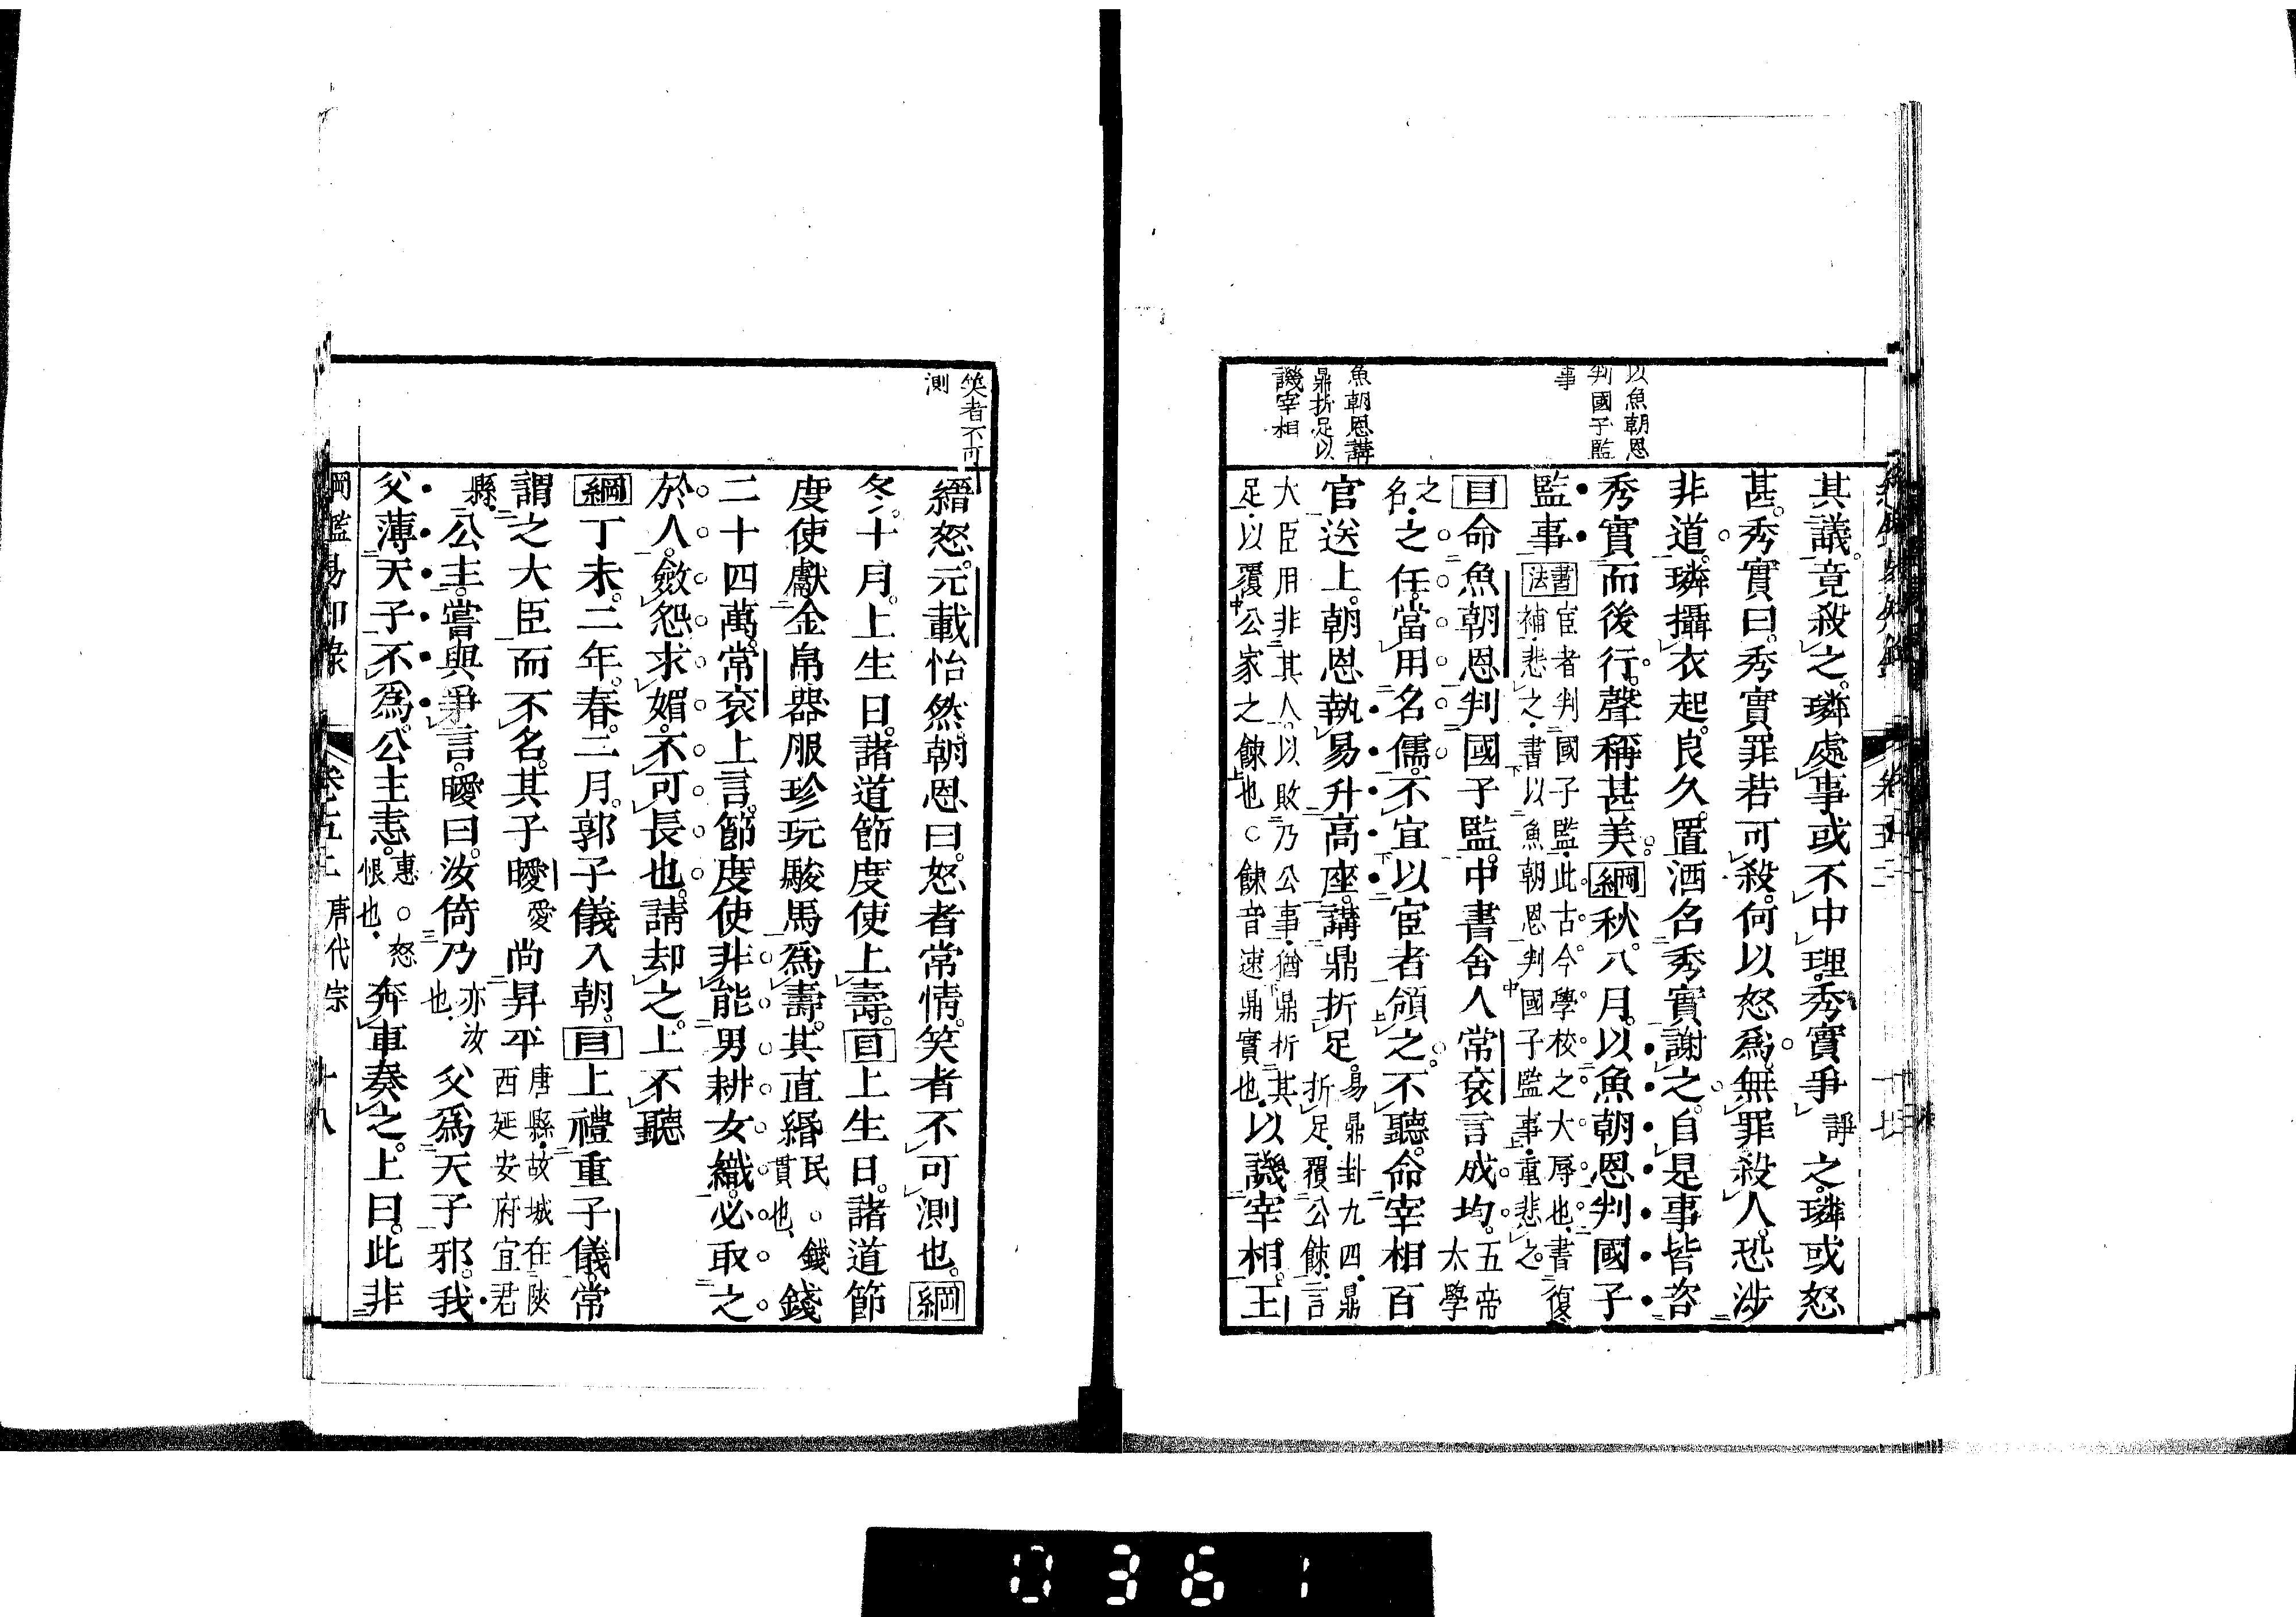 以魚朝恩
判國子監
事
魚朝恩講
鼎折足以
譏宰相
其議。竟殺之。璘處事或不中理。秀實爭諍之。璘或怒
甚。秀實曰。秀實罪若可殺。何以怒爲。無罪殺人。恐涉
非道。璘攝衣起。良久。置酒名秀實謝之。自是事皆咨
秀實而後行。聲稱甚美。綱秋八月。以魚朝恩判國子
監事書法宦者判國子監。此古今學校之大辱也。書復
補。悲之。書以魚朝恩判國子監事。重悲之。
目命魚朝恩判國子監。中書舍人常袞言成均。五帝太學
之名。之任。當用名儒。不宜以宦者領之。不聽。命宰相百
官送上。朝恩執易升高座。講鼎折足。易鼎卦九四。鼎折足。覆公餗。言
大臣用非其人。以敗乃公事。猶鼎折其
足。以覆公家之餗也。○餗音速鼎實也。以譏宰相。王
卷五二
笑者不可
測
縉怒。元載怡然。朝恩曰。怒者常情。笑者不可測也。綱
冬。十月。上生日。諸道節度使上壽。目上生日。諸道節
度使獻金帛器服珍玩駿馬爲壽。其直緡民○錢貫也。錢
二十四萬。常袞上言。節度使非能男耕女織。必取之
於人。斂怨求媚。不可長也。請却之。上不聽
綱丁未。二年。春。二月。郭子儀入朝。目上禮重子儀。常
謂之大臣而不名。其子曖愛尚昇平唐縣。故城在陝西延安府宜君
縣。公主。嘗與爭言。曖曰。汝倚乃亦汝也。父爲天子邪。我
父薄天子不爲。公主恚。惠○怒恨也。奔車奏之。上曰。此非
綱鑑易知錄 卷五二 唐代宗 十八
0361